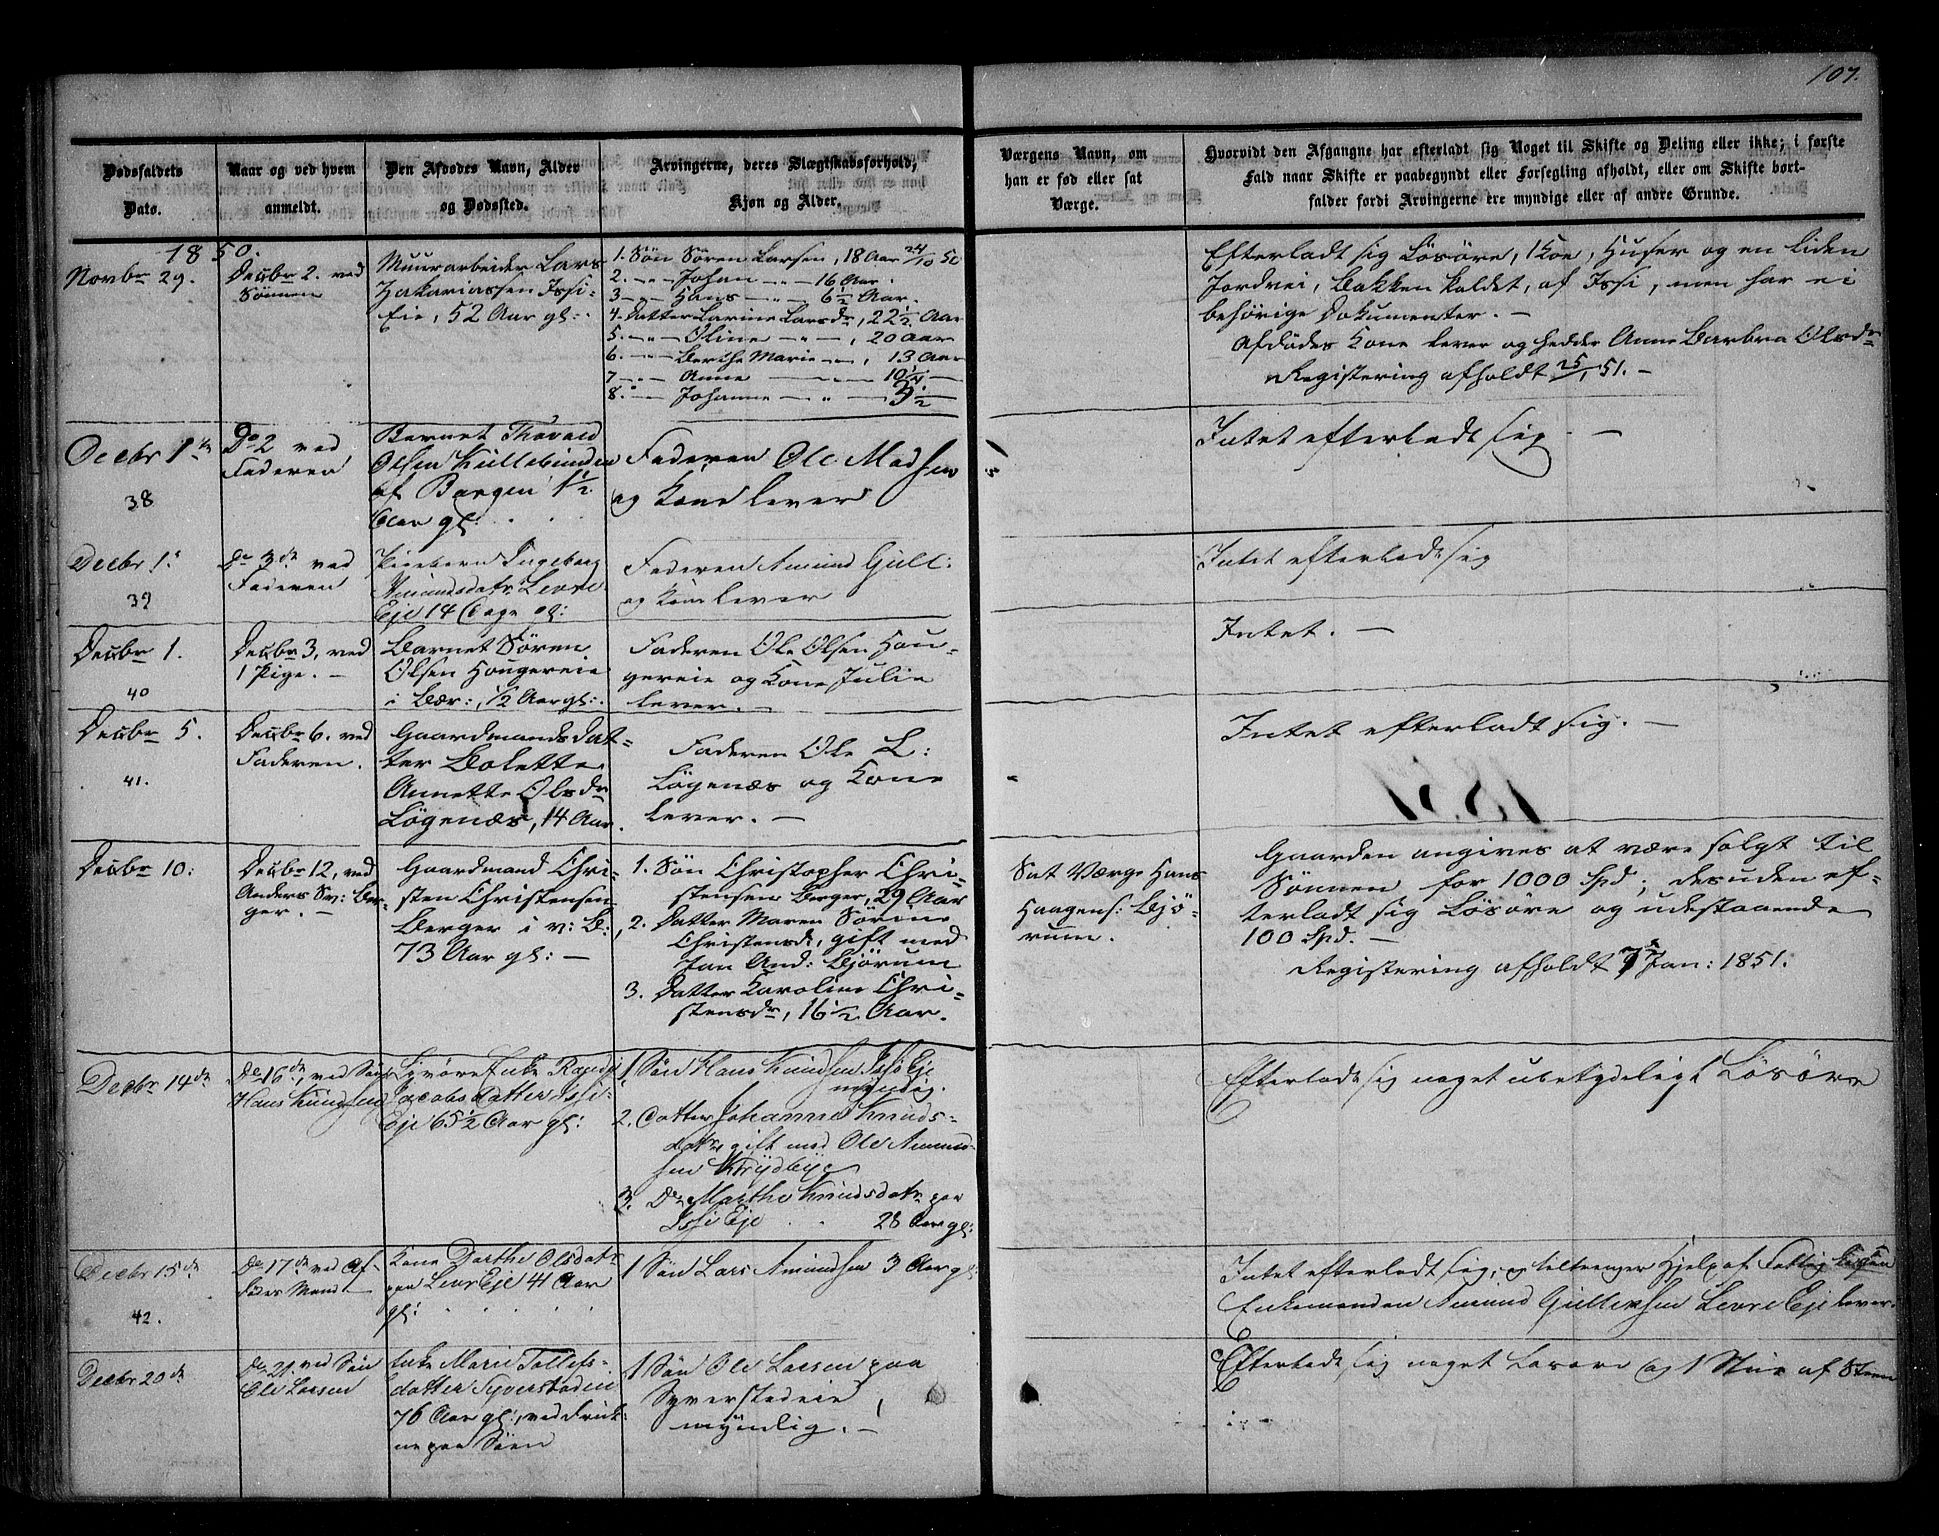 107.
Dødsfaldets
Dato.
Naar og ved hvem
anmeldt.
Den Afdødes Navn, Alder
og Dødssted.
Arvingerne, deres Slægtskabsforhold,
Kjøn og Alder.
Værgens Navn, om
han er fød eller sat
Værge.
Hvorvidt den Afgangne har efterladt sig Noget til Skifte og Deling eller ikke; i første
Fald naar Skifte er paabegyndt eller Forsegling afholdt, eller om Skifte bort-
falder fordi Arvingerne ere myndige eller af andre Grunde.
1850.
Novbr 29.
Decbr 2. ved
Sønnen
Muurarbeider Lars
Zakariassen Issi-
Eie, 52 Aar gl:
1. Søn Søren Larsen, 18 Aar 24/10 50
2. -"- Johan -"- 16 Aar.
3 -"- Hans -"- 6½ Aar.
4. Datter Larine Larsdr, 22½ Aar
5. -"- Oline -"-, 20 Aar
6. -"- Berthe Marie -"-, 13 Aar
7 -"- Anne — 10¼ —
8. -"- Johanne -"- 3½ —
Efterladt sig Løsøre, 1 Koe, Huser og en liden
Jordvei, Bakken kaldet, af Issi, men har ei
behørige Dokumenter. —
Afdødes Kone lever og hedder Anne Barbra Olsdr
Registering afholdt 25/1 51. —
Decbr 1ste
38
Do 2 ved
Faderen
Barnet Thovald
Olsen
af 1½
Aar gl:
Faderen Ole Madsen
og Kone lever
Intet efterladt sig —
Decbr 1.
39
Do 3de ved
Faderen
Pigebarn Ingeborg
Amundsdatr Levre
Eje 14 Dage gl:
Faderen Amund Gull:
og Kone lever
Intet efterladt sig
Decbr 1.
40
Decbr 3, ved
1 Pige. —
Barnet Søren
Olsen Hougereie
i Bær:, ½ Aar gl:.
Faderen Ole Olsen Hou-
gereie og Kone Julie
lever. —
Intet. —
Decbr 5.
41.
Decbr 6. ved
Faderen.
Gaardmandsdat-
ter Bolette
Annette Olsdr
Løgenæs, 14 Aar.
Faderen Ole L:
Løgenæs og Kone
lever. —
Intet efterladt sig. —
Decbr 10:
Decbr 12, ved
Anders Sv: Ber-
ger. —
Gaardmand Chri-
sten Christensen
Berger i v: B:,
73 Aar gl: —
1. Søn Christopher Chri-
stensen Berger, 29 Aar
2. Datter Maren Sørine
Christensdr, gift med
Jan And: Bjørum
3. Datter Karoline Chri-
stensdr, 16½ Aar.
Sat Værge Hans
Haagens: Bjø-
rum.
Gaarden angives at være solgt til
Sønnen for 1000 Spd; desuden ef-
terladt sig Løsøre og udestaaende
100 Spd. —
Registering afholdt 7 Jan: 1851.
Decbr 14de
Do 16de, ved Søn
Hans Knudsen
Enke Randi
Jacobsdatter Issi-
Eje 65½ Aar gl:
1. Søn Hans Knudsen Issi Eje
myndig.
2. Datter Johanne Knuds-
datr, gift med Ole Amund-
sen
3. Do Marthe Knudsdatr paa
Issi Eje 28 Aar gl:
Efterladt sig noget ubetydeligt Løsøre
Decbr 15de
42.
Do 17de ved Af-
dødes Mand
Kone Dorthe Olsdatr
paa Levre Eje 41 Aar
gl:
1 Søn Lars Amundsen 3 Aar gl
Intet efterladt sig, og tiltrænger Hjelp af Fattig Kassen
Enkemanden Amund Gulliksen Levre Eje lever.
Decbr 20de
Do 21. ved Søn
Ole Larsen
Enke Marie Tollefs-
datter Syverstadeie
76 Aar gl:, ved
paa Søen
1 Søn Ole Larsen paa
Syverstedeie,
myndig. —
Efterladt sig noget Løsøre og 1 Stue af Steen